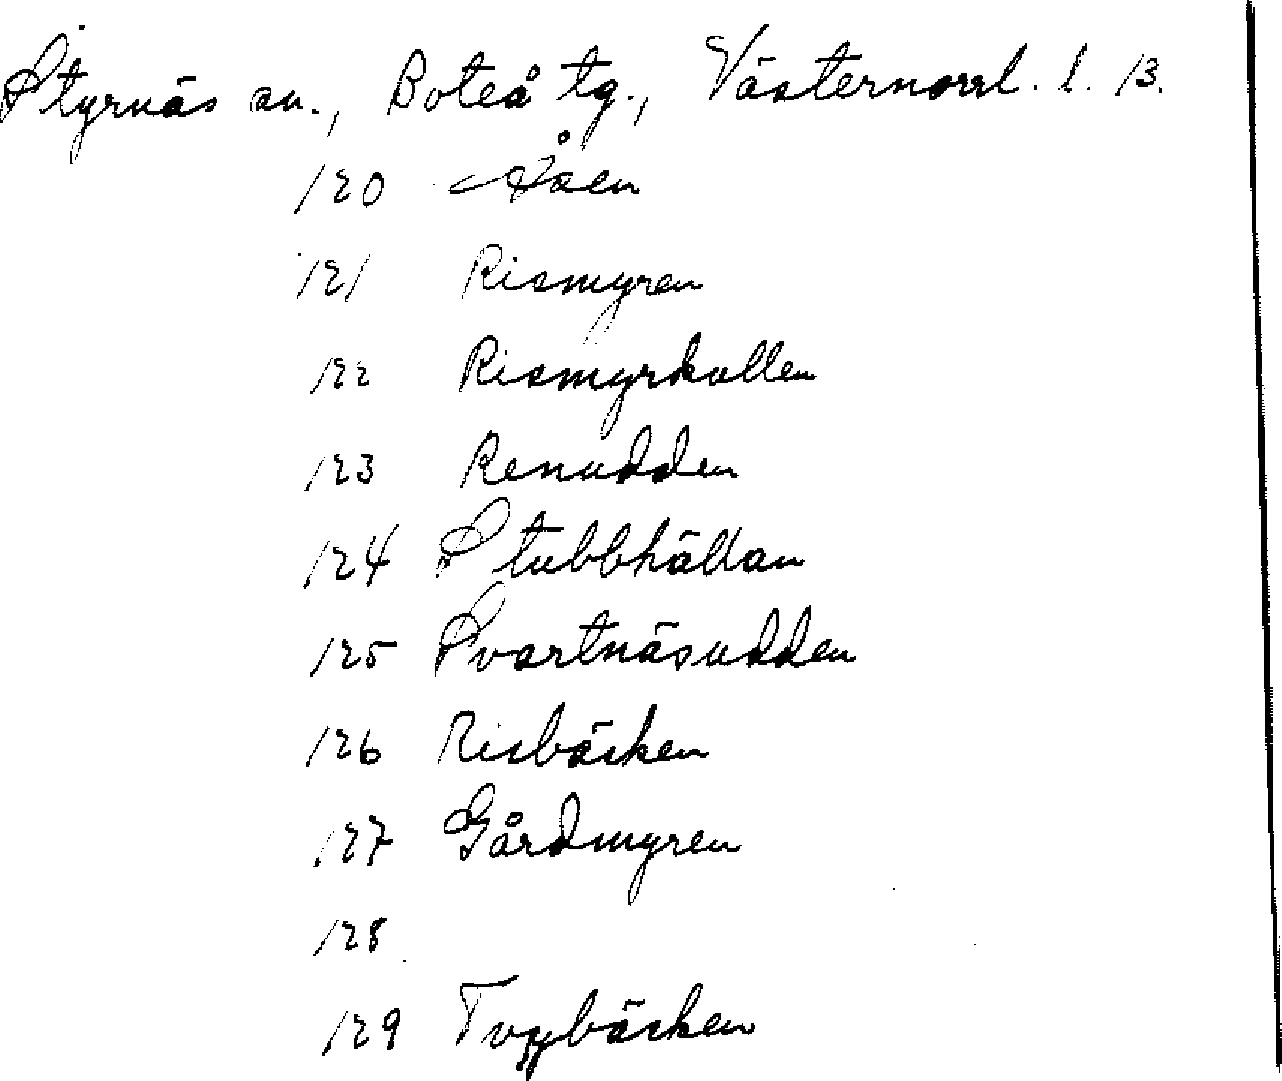 Styrnäs sn., Boteå tg., Västernorrl. l. 13.
120 Åsen
121 Rismyren
122 Rismyrkullen
123 Renudden
124 Stubbhällan
125 Svartnäsudden
126 Risbäcken
127 Gårdmyren
128
129